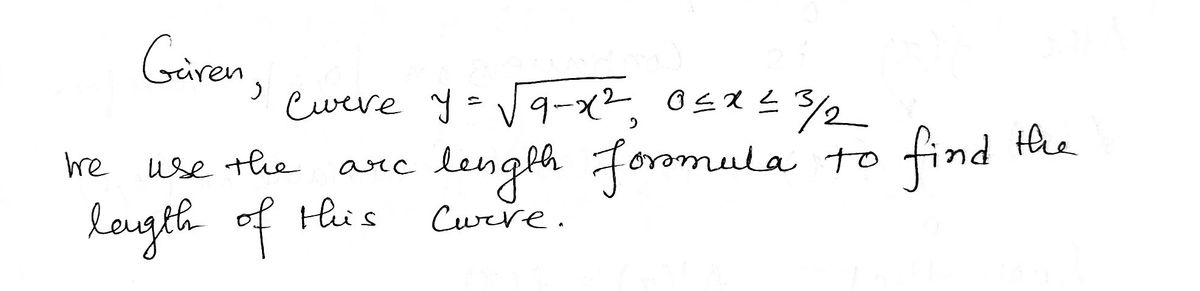 Given,
curve y = √9-x², 0 ≤ x ≤ 3/2
We use the arc length formula to find the
length of this curve.